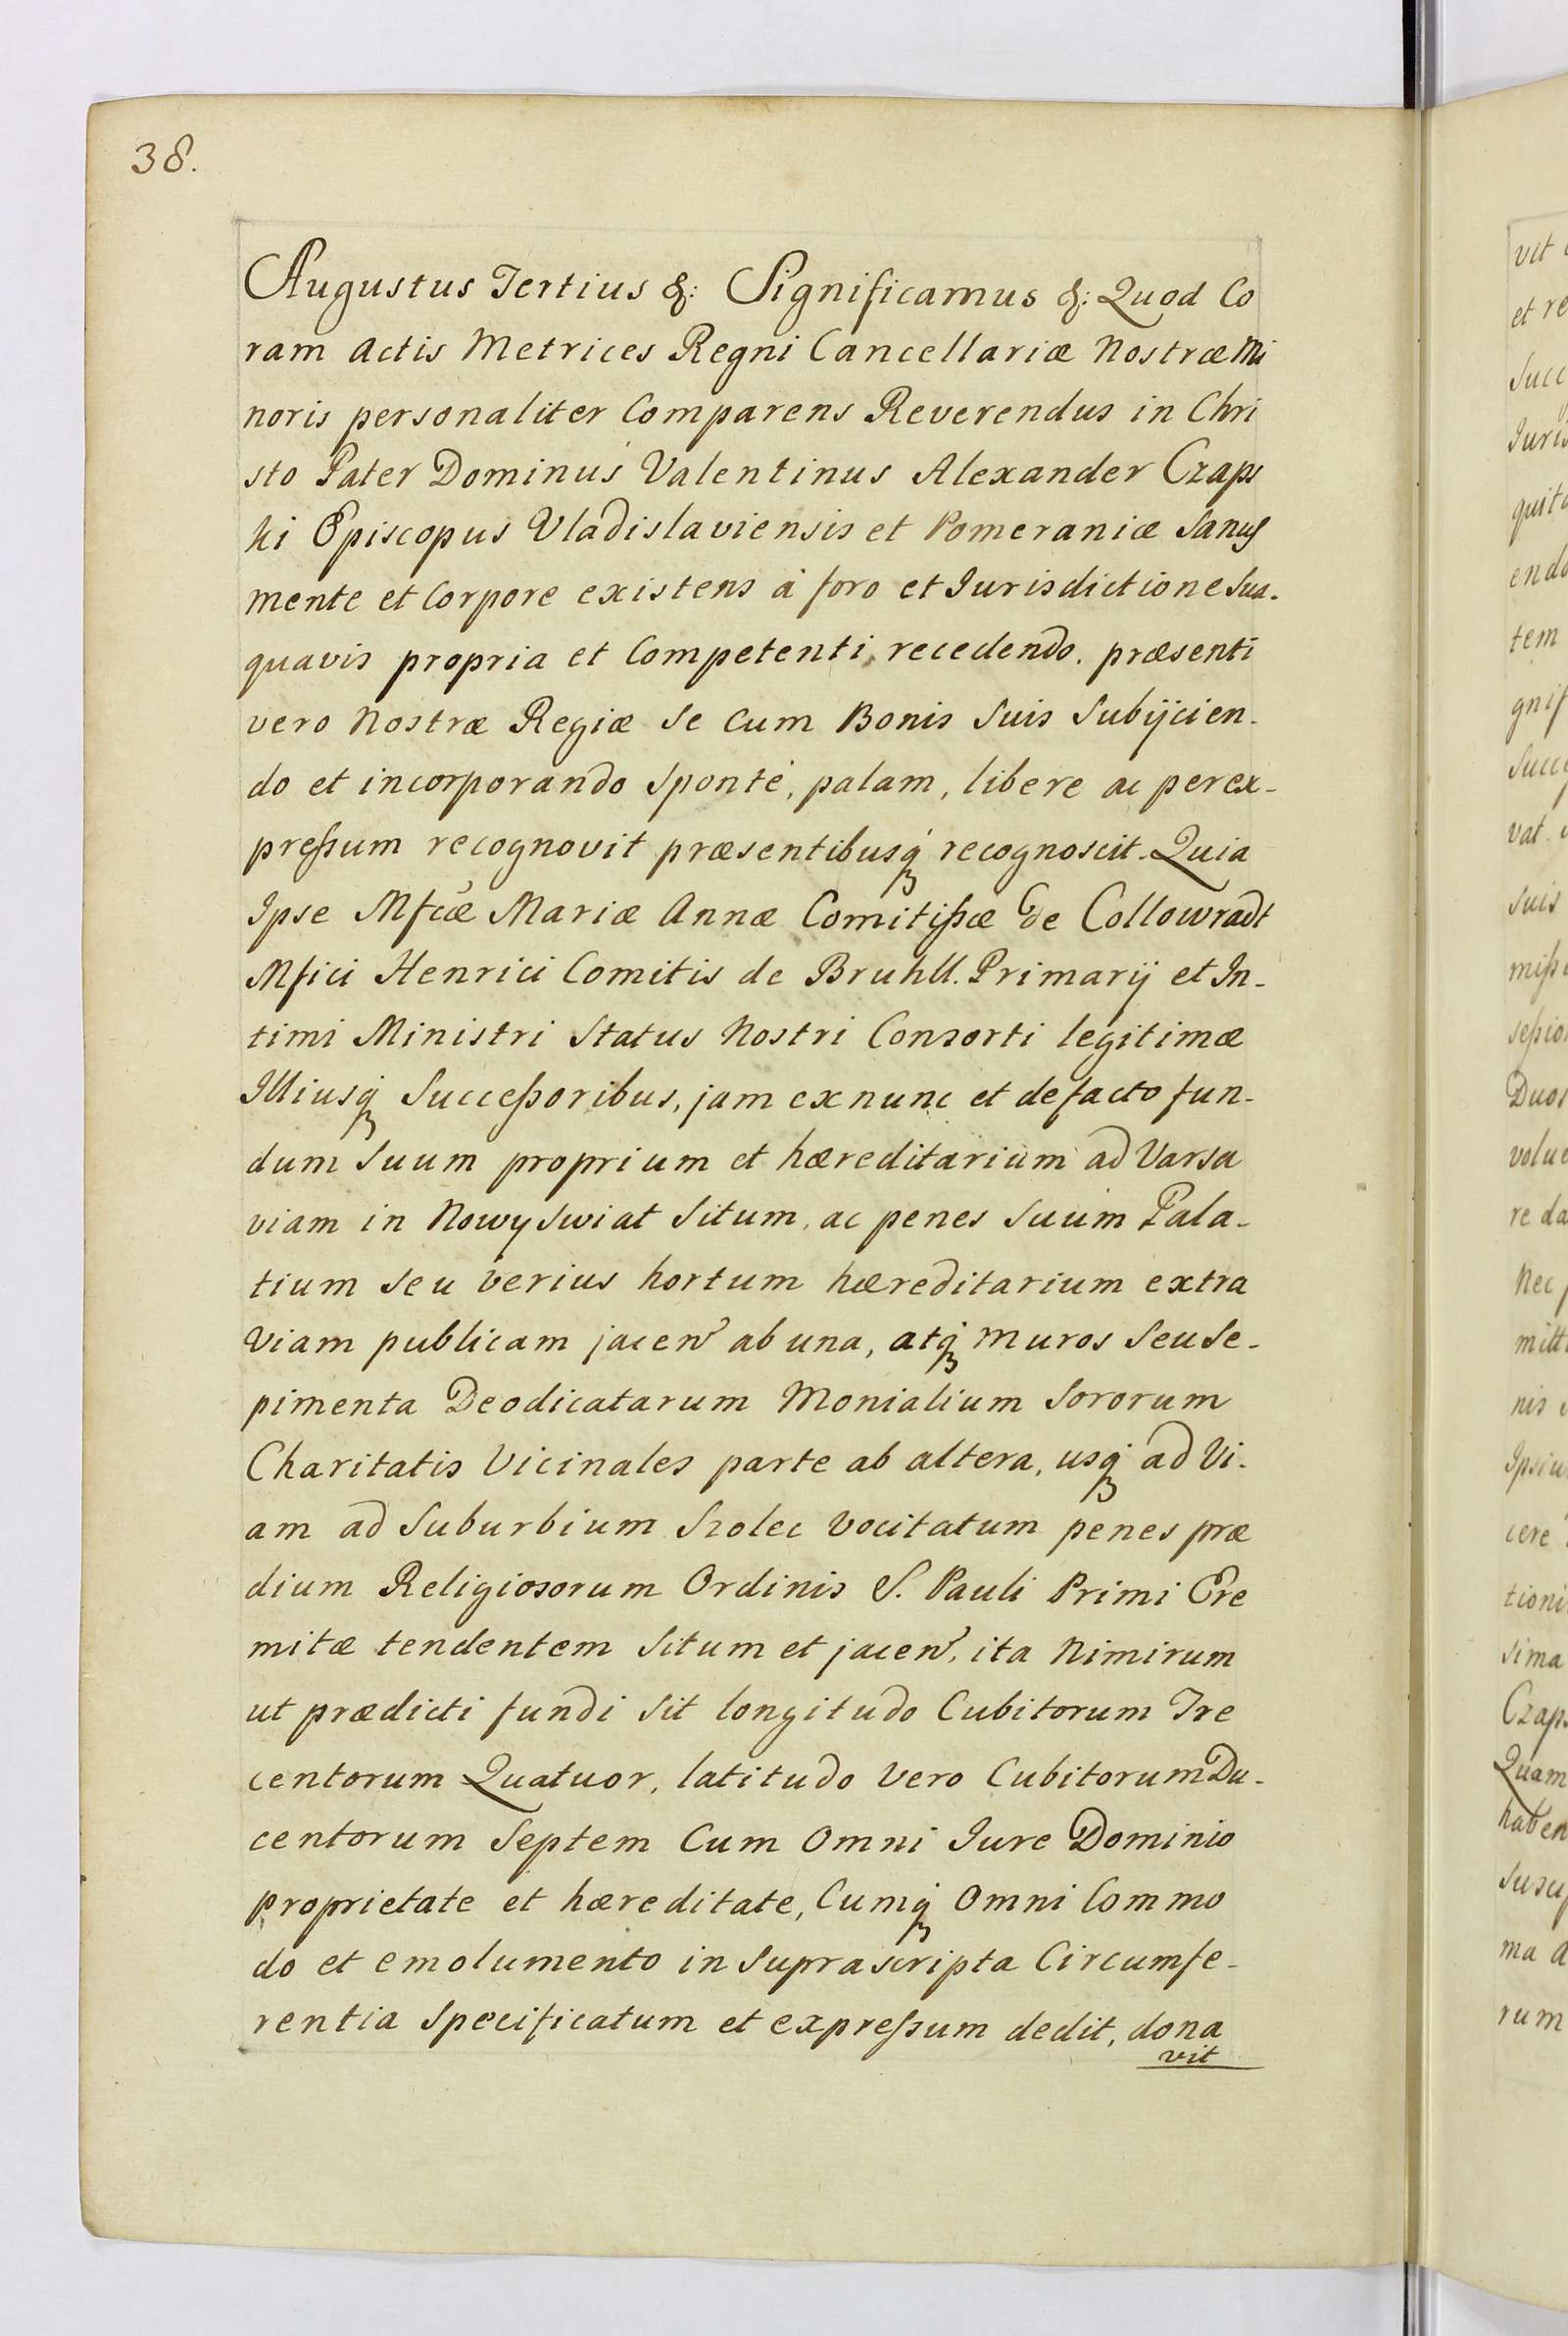 38.
Augustus Tertius &: Significamus &: Quod Co
ram Actis Metrices Regni Cancellariæ Nostræ Mi
noris personaliter Comparens Reverendus in Chri
sto Pater Dominus Valentinus Alexander Czaps
ki Episcopus Vladislaviensis et Pomeraniæ Sanus
mente et Corpore existens à foro et Iurisdictione Sua.
quavis propria et Competenti recedendo. præsenti
vero Nostræ Regiæ Se Cum Bonis Suis Subijcien-
do et incorporando Sponte, palam, libere ac perex-
preßum recognovit præsentibusq́ recognoscit. Quia
Ipse Mfcæ Mariæ Annæ Comitißæ de Collowradt
Mfici Henrici Comitis de Bruhll. Primarij et In-
timi Ministri Status Nostri Consorti legitimæ
Illiusq́ Succeßoribus, jam ex nunc et de facto fun-
dum Suum proprium et hæreditarium ad Varsa
viam in Nowy Swiat Situm, ac penes Suum Pala-
tium Seu verius hortum hæreditarium extra
Viam publicam jacen̄ ab una, atq́ muros Seu Se-
pimenta Deodicatarum Monialium Sororum
Charitatis Vicinales parte ab altera, usq́ ad Vi-
am ad Suburbium Szolec Vocitatum penes præ
dium Religiosorum Ordinis S. Pauli Primi Ere
mitæ tendentem Situm et jacen̄, ita Nimirum
ut prædicti fundi Sit longitudo Cubitorum Tre
centorum Quatuor, latitudo Vero Cubitorum Du-
centorum Septem Cum Omni Iure Dominio
proprietate et hæreditate, Cumq́ Omni Commo
do et emolumento in Suprascripta Circumfe-
rentia Specificatum et expreßum dedit, dona
vit